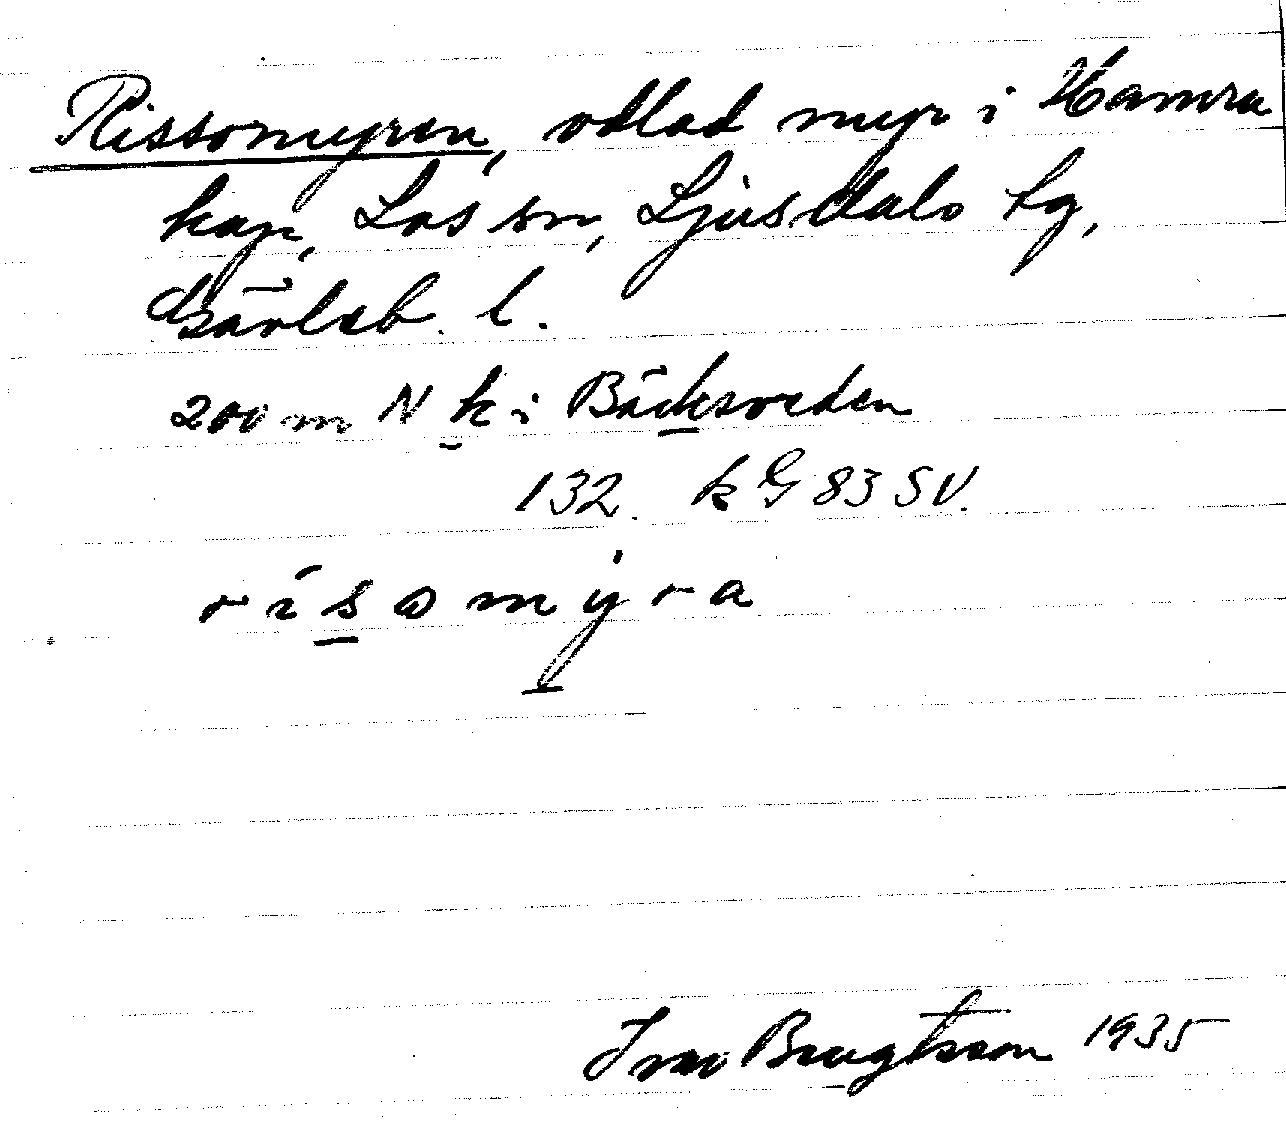 Rissomyren, odlad myr i Hamra
kap, Los sn, Ljusdals tg,
Gävleb. l.
200 m N k i Bäcksveden
132. k G 83 SV.
rísomýra
Ivar Bengtsson 1935